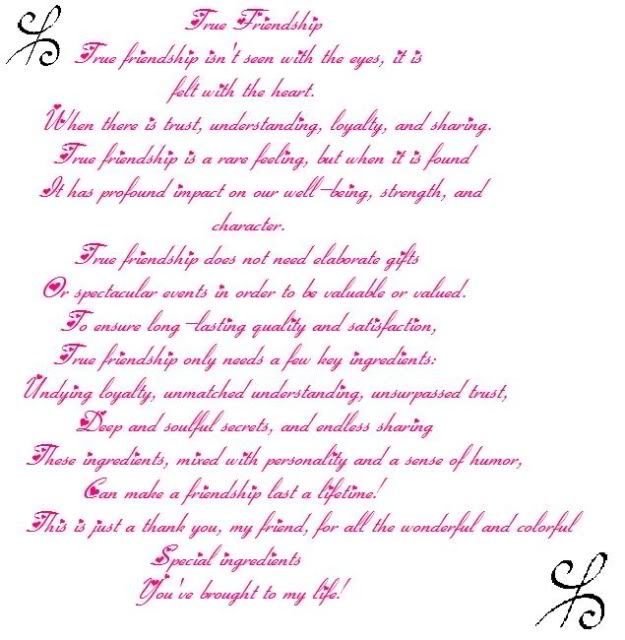 True Friendship
True friendship isn't seen with the eyes, it is
felt with the heart.
When there is trust, understanding, loyalty, and sharing.
True friendship is a rare feeling, but when it is found
It has profound impact on our well-being, strength, and
character.
True friendship does not need elaborate gifts
Or spectacular events in order to be valuable or valued.
To ensure long-lasting quality and satisfaction,
True friendship only needs a few key ingredients:
Undying loyalty, unmatched understanding, unsurpassed trust,
Deep and soulful secrets, and endless sharing
These ingredients, mixed with personality and a sense of humor,
Can make a friendship last a lifetime!
This is just a thank you, my friend, for all the wonderful and colorful
Special ingredients
You've brought to my life!